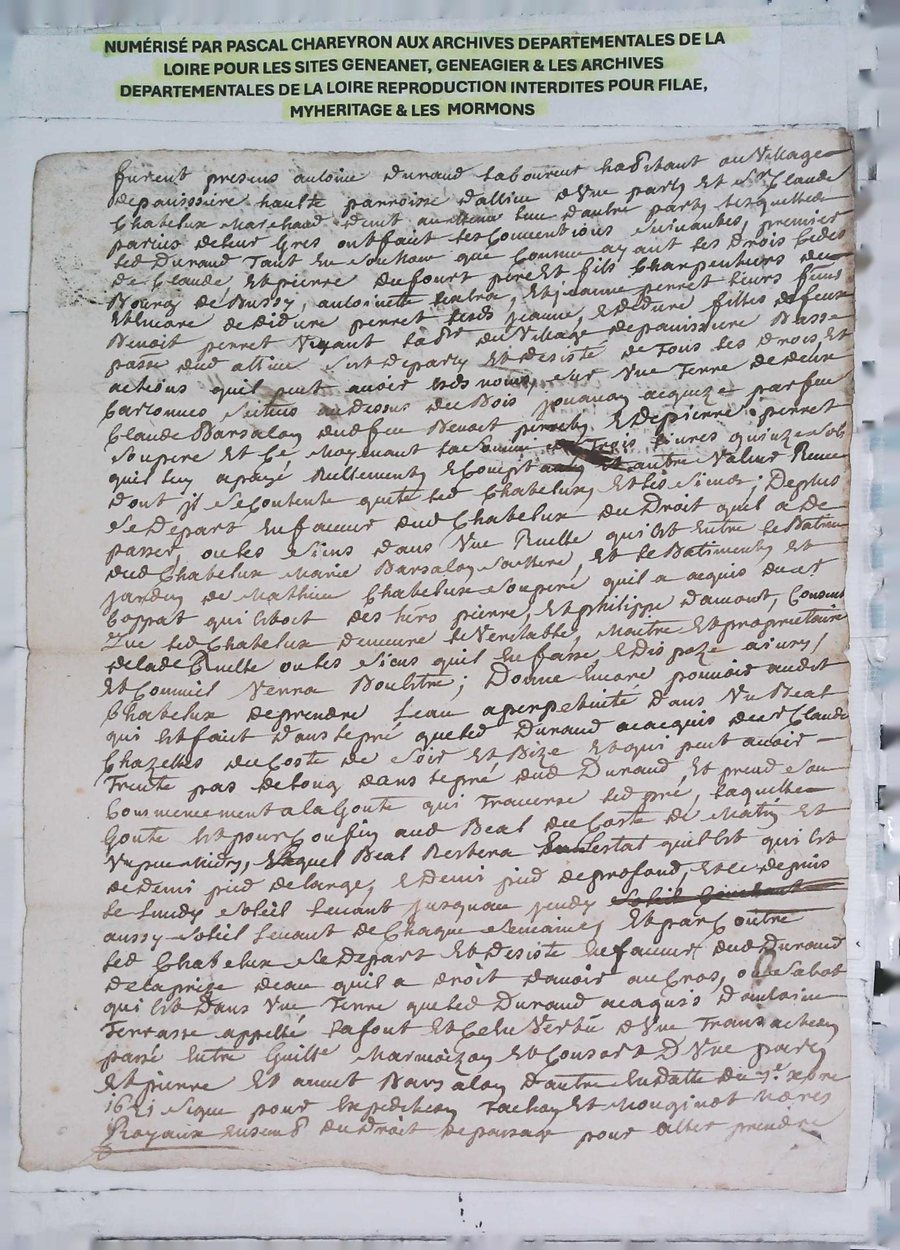 NUMÉRISÉ PAR PASCAL CHAREYRON AUX ARCHIVES DEPARTEMENTALES DE LA
LOIRE POUR LES SITES GENEANET, GENEAGIER & LES ARCHIVES
DEPARTEMENTALES DE LA LOIRE REPRODUCTION INTERDITES POUR FILAE,
MYHERITAGE & LES MORMONS
furent presens antoine Durand laboureur habitant au Village
depaussiere haulte parroisse d'allieu d'Vne party Et Sr Claude
Chatelux Marchand dud lieu d'autre party lesquelles
parties deleur Gres ontfait les Conventions Suivantes, premier
led Durand Tant En Son Nom que Comme ayant les Drois Cedés
de Claude, Et pierre Dufourt pere Et fils Charpentiers du
Bourg de Bussy, antoinette, Et jeanne perret leurs
Et Encore de perret jeanne, filles defeux
Benoit perret Vivant labr du Village depaussiere Basse
passe dud allieu S'est Departy Et desisté de Tous les Drois, Et
actions quil peut avoir esds noms, sur Vne Terre de deux
Cartonnes Scituee audessus du Bois jouanon acquize parfeu
Claude Barsalon dudfeu Benoit perret, Et depierre perret
Soupere Et Ce Moyenant la Somme Trois livres quinze Sols
quil luy apayé Reellement, Et autre Valeur Receue
Dont jl SeContente quitte led Chatelux, Et les Siens; Deplus
Se Depart Enfaveur dud Chatelux du Droit quil a de
passer, ou les Siens dans Vne Ruelle qui Est Entre le Batiment
dud Chatelux Marie Barsalon Samere, Et le Batiment, Et
jardin de Mathieu Chatelux Soupere quil a acquis du Sr
Coppat qui Estoit des hers pierre, Et philippe Damont, Consent
Que led Chatelux demeure leVeritable, Maitre Et proprietaire
delade Ruelle ou les Siens quil En fasse, Et dispoze
Et Comme il Verra Boulitre; Donne Encore pouvoir audit
Chatelux deprendre Leau aperpetuité dans Vn Beal
qui Estfait dans lepré queled Durand aacquis du Sr Claude
Chazelles du Coste de Soir Et Bize, Et qui peut avoir
Trente pas delong dans lepré dud Durand, Et prend Son
Commencement ala Goute qui Traverse led pré, laquelle
Goute Est pour Confin aud Beal du Coste de Matin Et
Midy, lequel Beal Restera Enlestat quil Est qui Est
de Demi pied delarge, Et Demi pied deprofond, Et Ce depuis
le Lundy Soleil Levant jusquau jeudy
aussy Soleil Levant de Chaque Semaine, Et par Contre
led Chatelux Se Depart Et desiste Enfaveur dud Durand
delaprize deau quil a droit davoir au Cros, ou Sabot
qui Est Dans Vne Terre queled Durand aacquis D'antoine
Terrasse appellé Lafont Et Cela Vertu d'Vne Transaction
passé Entre Guille Marmoizon Et Consort D'Vne party
Et pierre Et annet Barsalon d'autre Endatte du 7e xbre
1651 Signé pour Expedition Tachon Et Mouginot Nores
Royaux Ensemb du Droit depassage pour aller prendre